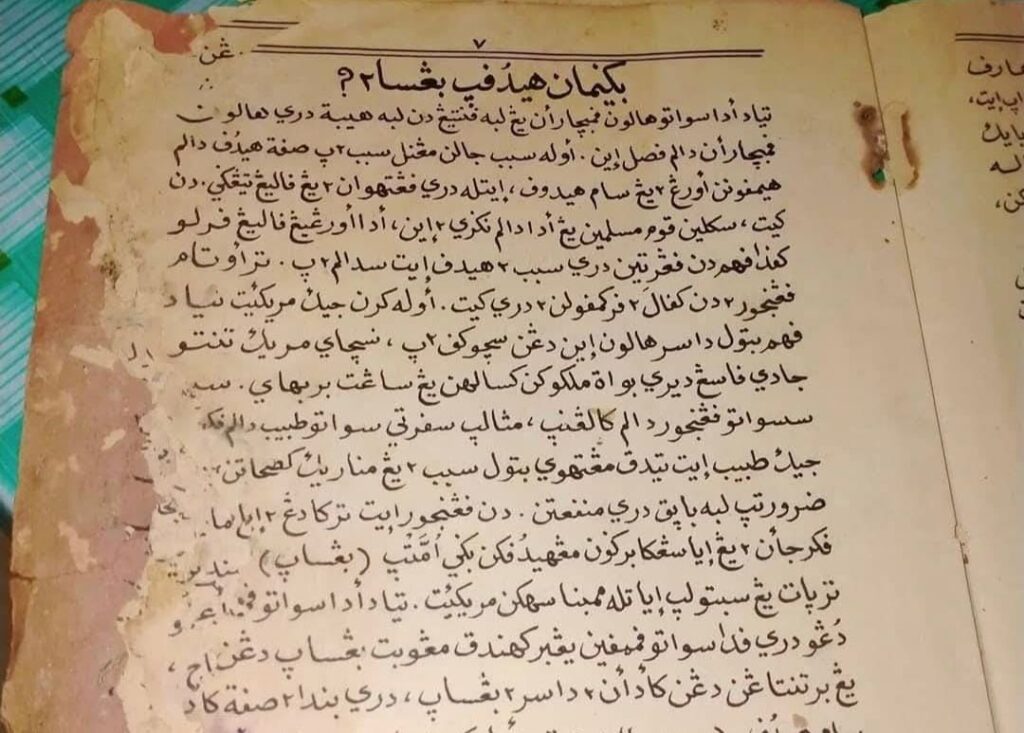 ٧
بݢيمان هيدُفڽ بڠسا٢؟
تياد أد اسواتو هالون فمبچارأن يڠ لبه فنتيڠ دن لبه هيبة دري هالون
فمبچارأن دالم فصل إين. أوله سبب جالن مڠنل سبب٢ڽ صفة هيدُف دالم
هيمفونن أورڠ٢ يڠ سام هيدوف، إيتله دري فڠتهوان٢ يڠ فاليڠ تيڠكي. دن
كيت، سكلين قوم مسلمين يڠ أد ادالم نكري٢ إين، أد اأورڠيڠ فاليڠ فرلو
كفد افهم دن فڠرتين دري سبب٢ هيدف إيت سدالم٢ڽ. تراوتام
فڠنجور٢ دن كفال٢ فركمفولن٢ دري كيت. أوله كرن جيك مريكئيت تياد
فهم بتول داسر هالون إين دڠن سچوكف٢ڽ، نسچاي مريك تنتو
جادي فاسڠ ديري بواة ملكوكن كسالهن يڠ ساڠت بربهاي.
سسواتو فڠنجور دالم كالڠنڽ، مثالڽ سفرتي سواتو طبيب دالم
جيك طبيب إيت تيدق مڠتهوي بتول سبب٢ يڠ مناريك كصحاتن
ضرورتڽ لبه باڽق دري منفعتن. دن فڠنجور إيت تركادڠ٢ إيا
فكرجأن٢ يڠ إيا سڠكا بركون مڠهيدُفكن بكي اُمَّتڽ (بڠساڽ)
ترڽات يڠ سبتولڽ إيا تله ممبناسهكن مريكئيت. تياد أد اسواتو
دُڠو دري فد اسواتو فميمفين يڠبركهندق مڠوبت بڠساڽ دڠن
يڠ برتنتاڠن دڠن كأدأن٢ داسر٢ بڠساڽ، دري بندا٢ صفة